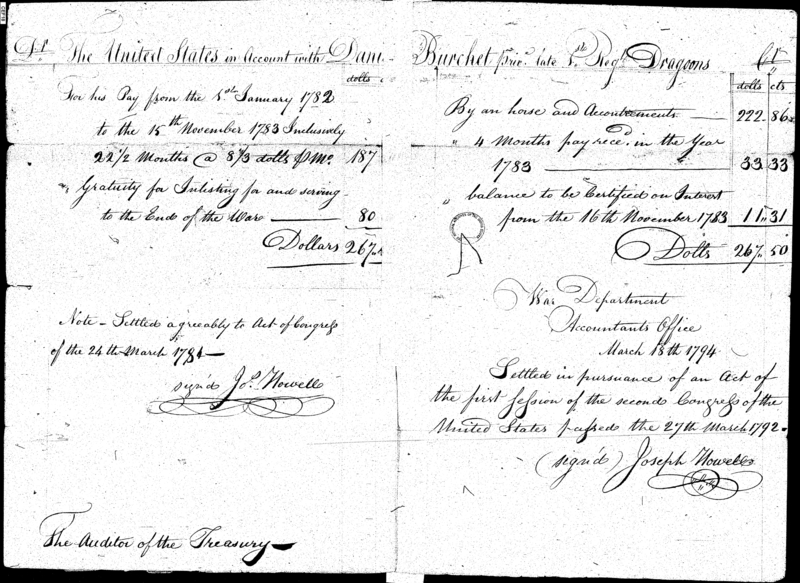 Dr. The United States in Account with Dani
dolls
For his Pay from the 1st January 1782
to the 15th November 1783 Inclusively
22 1/2 Months @ 8 1/3 dolls p Mo. 187
" Gratuity for Inlisting for and serving
to the End of the War 80
Dollars 267
Note - Settled agreeably to Act of Congress
of the 24th March 1781
sign'd Jo. Howell
The Auditor of the Treasury
Burchet priv. late 1st Regt. Dragoons Cr
dolls cts
By an horse and Accoutrements 222. 86
" 4 Months pay rece. in the Year
1783 33 33
" balance to be Certified on Interest
from the 16th November 1783 11" 31
Dolls 267" 50
War Department
Accountants Office
March 18th 1794
Settled in pursuance of an Act of
the first session of the second Congress of the
United States passed the 27th March 1792.
(sign'd) Joseph Howell